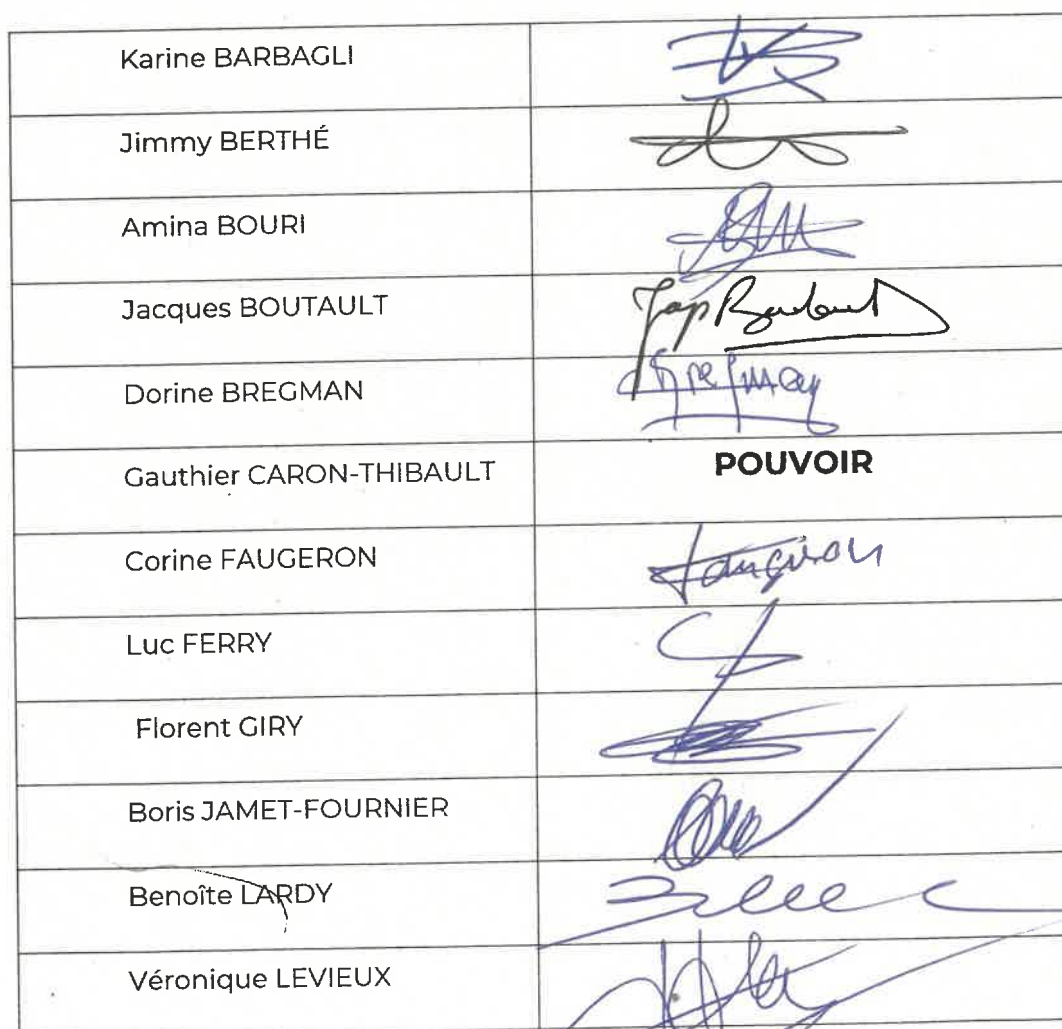 Karine BARBAGLI
Jimmy BERTHÉ
Amina BOURI
Jacques BOUTAULT
Dorine BREGMAN
Gauthier CARON-THIBAULT POUVOIR
Corine FAUGERON Faugeron
Luc FERRY
Florent GIRY
Boris JAMET-FOURNIER
Benoîte LARDY
Véronique LEVIEUX